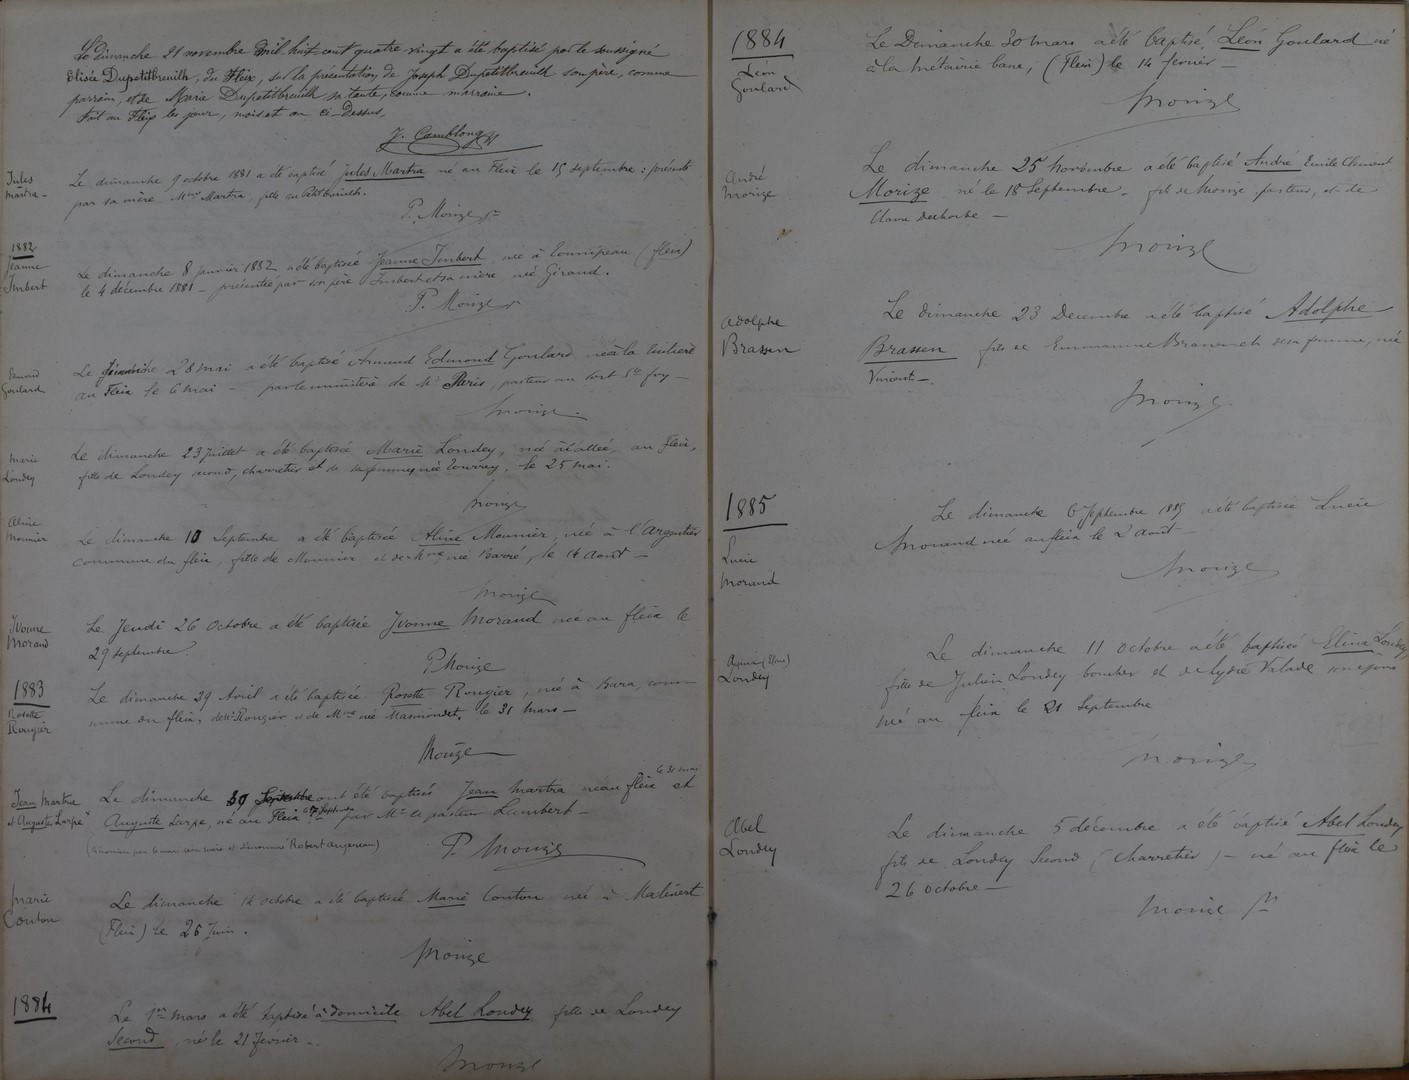 Le dimanche 21 novembre mil huit cent quatre vingt a été baptisé par le soussigné
Elisée Dupetitbreuilh, du Fleix, sur la présentation de Joseph Dupetitbreuilh son père, comme
parrain, et de Marie Dupetitbreuilh, sa tante, comme marraine.
Fait au Fleix les jour, mois et an ci-Dessus,
J. Camblong
Jules
Martra
Le dimanche 9 octobre 1881 a été baptisé Jules Martra né au Fleix le 15 septembre : présenté
par sa mère Mme Martra, fille Du Petitbreuilh.
P. Morize
1882
Jeanne
Imbert
Le dimanche 8 janvier 1882 a été baptisée Jeanne Imbert, née à (fleix)
le 4 décembre 1881 - présentée par son père Imbert et sa mère née Giraud.
P. Morize
Edmond
Goulard
Le dimanche 28 mai a été baptisé Armand Edmond Goulard né à la
au Fleix le 6 mai - par le ministère de Mr Paris, pasteur au Port Ste foy -
Morize
Marie
Londey
Le dimanche 23 juillet a été baptisée Marie Londey, née à l'allée, au Fleix,
fille de Londey second, charretier et de sa femme née Tourrey, le 25 mai.
Morize
Aline
Mounier
Le dimanche 10 Septembre a été baptisée Aline Mounier, née à l'Argentier
commune du fleix, fille de Mounier et de Mme née Barré, le 14 Août -
Morize
Yvonne
Morand
Le Jeudi 26 Octobre a été baptisée Yvonne Morand née au fleix le
29 septembre.
P. Morize
1883
Rosette
Rougier
Le dimanche 29 Avril a été baptisée Rosette Rougier, née à Bara, com-
mune du fleix, de Mr Rougier et de Mme née Masmondet, le 31 Mars -
Morize
Jean Martra
et Auguste Larpe
le 31 mai
Le dimanche 30 Septembre ont été baptisés Jean Martra né au fleix et
Auguste Larpe, né au Fleix le Septembre par Mr le pasteur Lambert -
P. Morize
Marie
Couton
Le dimanche 14 octobre a été baptisée Marie Couton née à Malivert
(Fleix) le 26 Juin.
Morize
1884
Le 1er mars a été baptisé à domicile Abel Londey fils de Londey
Second, né le 21 février -
Morize
1884
Léon
Goulard
Le Dimanche 30 mars a été baptisé Léon Goulard né
à la métairie bane, (Fleix) le 14 février -
Morize
André
Morize
Le dimanche 25 Novembre a été baptisé André Emile Clément
Morize né le 18 Septembre - fils de Morize pasteur, et de
Clara
Morize
Adolphe
Brassen
Le dimanche 23 Decembre a été baptisé Adolphe
Brassen fils de Emmanuel et de sa femme, née
Vincent -
Morize
1885
Lucie
Morand
Le dimanche 6 Septembre 1885 a été baptisée Lucie
Morand née au fleix le 2 août -
Morize
(Elina)
Londey
Le dimanche 11 Octobre a été baptisée Elina Londey
fille de Julien Londey boucher et de Lydie Valade son épouse
née au fleix le 21 Septembre
Morize
Abel
Londey
Le dimanche 5 décembre a été baptisé Abel Londey
fils de Londey Second (charretier) - né au fleix le
26 Octobre -
Morize